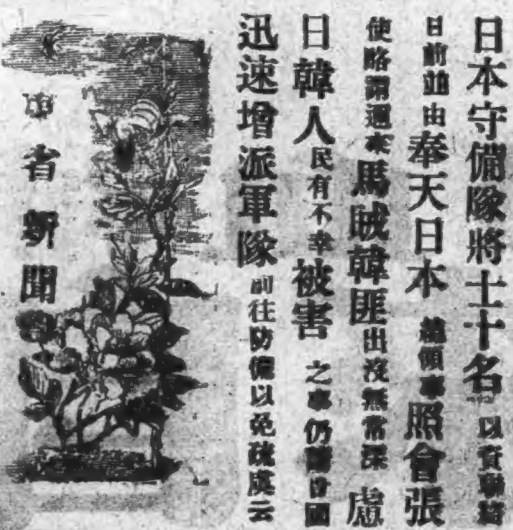 日本守備隊將士十名以資聯絡
日前並由奉天日本總領事照會張
使略謂邇來馬賊韓匪出沒無常深慮
日韓人民有不幸被害之事仍國
迅速增派軍隊前往防備以免疏虞云
東省新聞